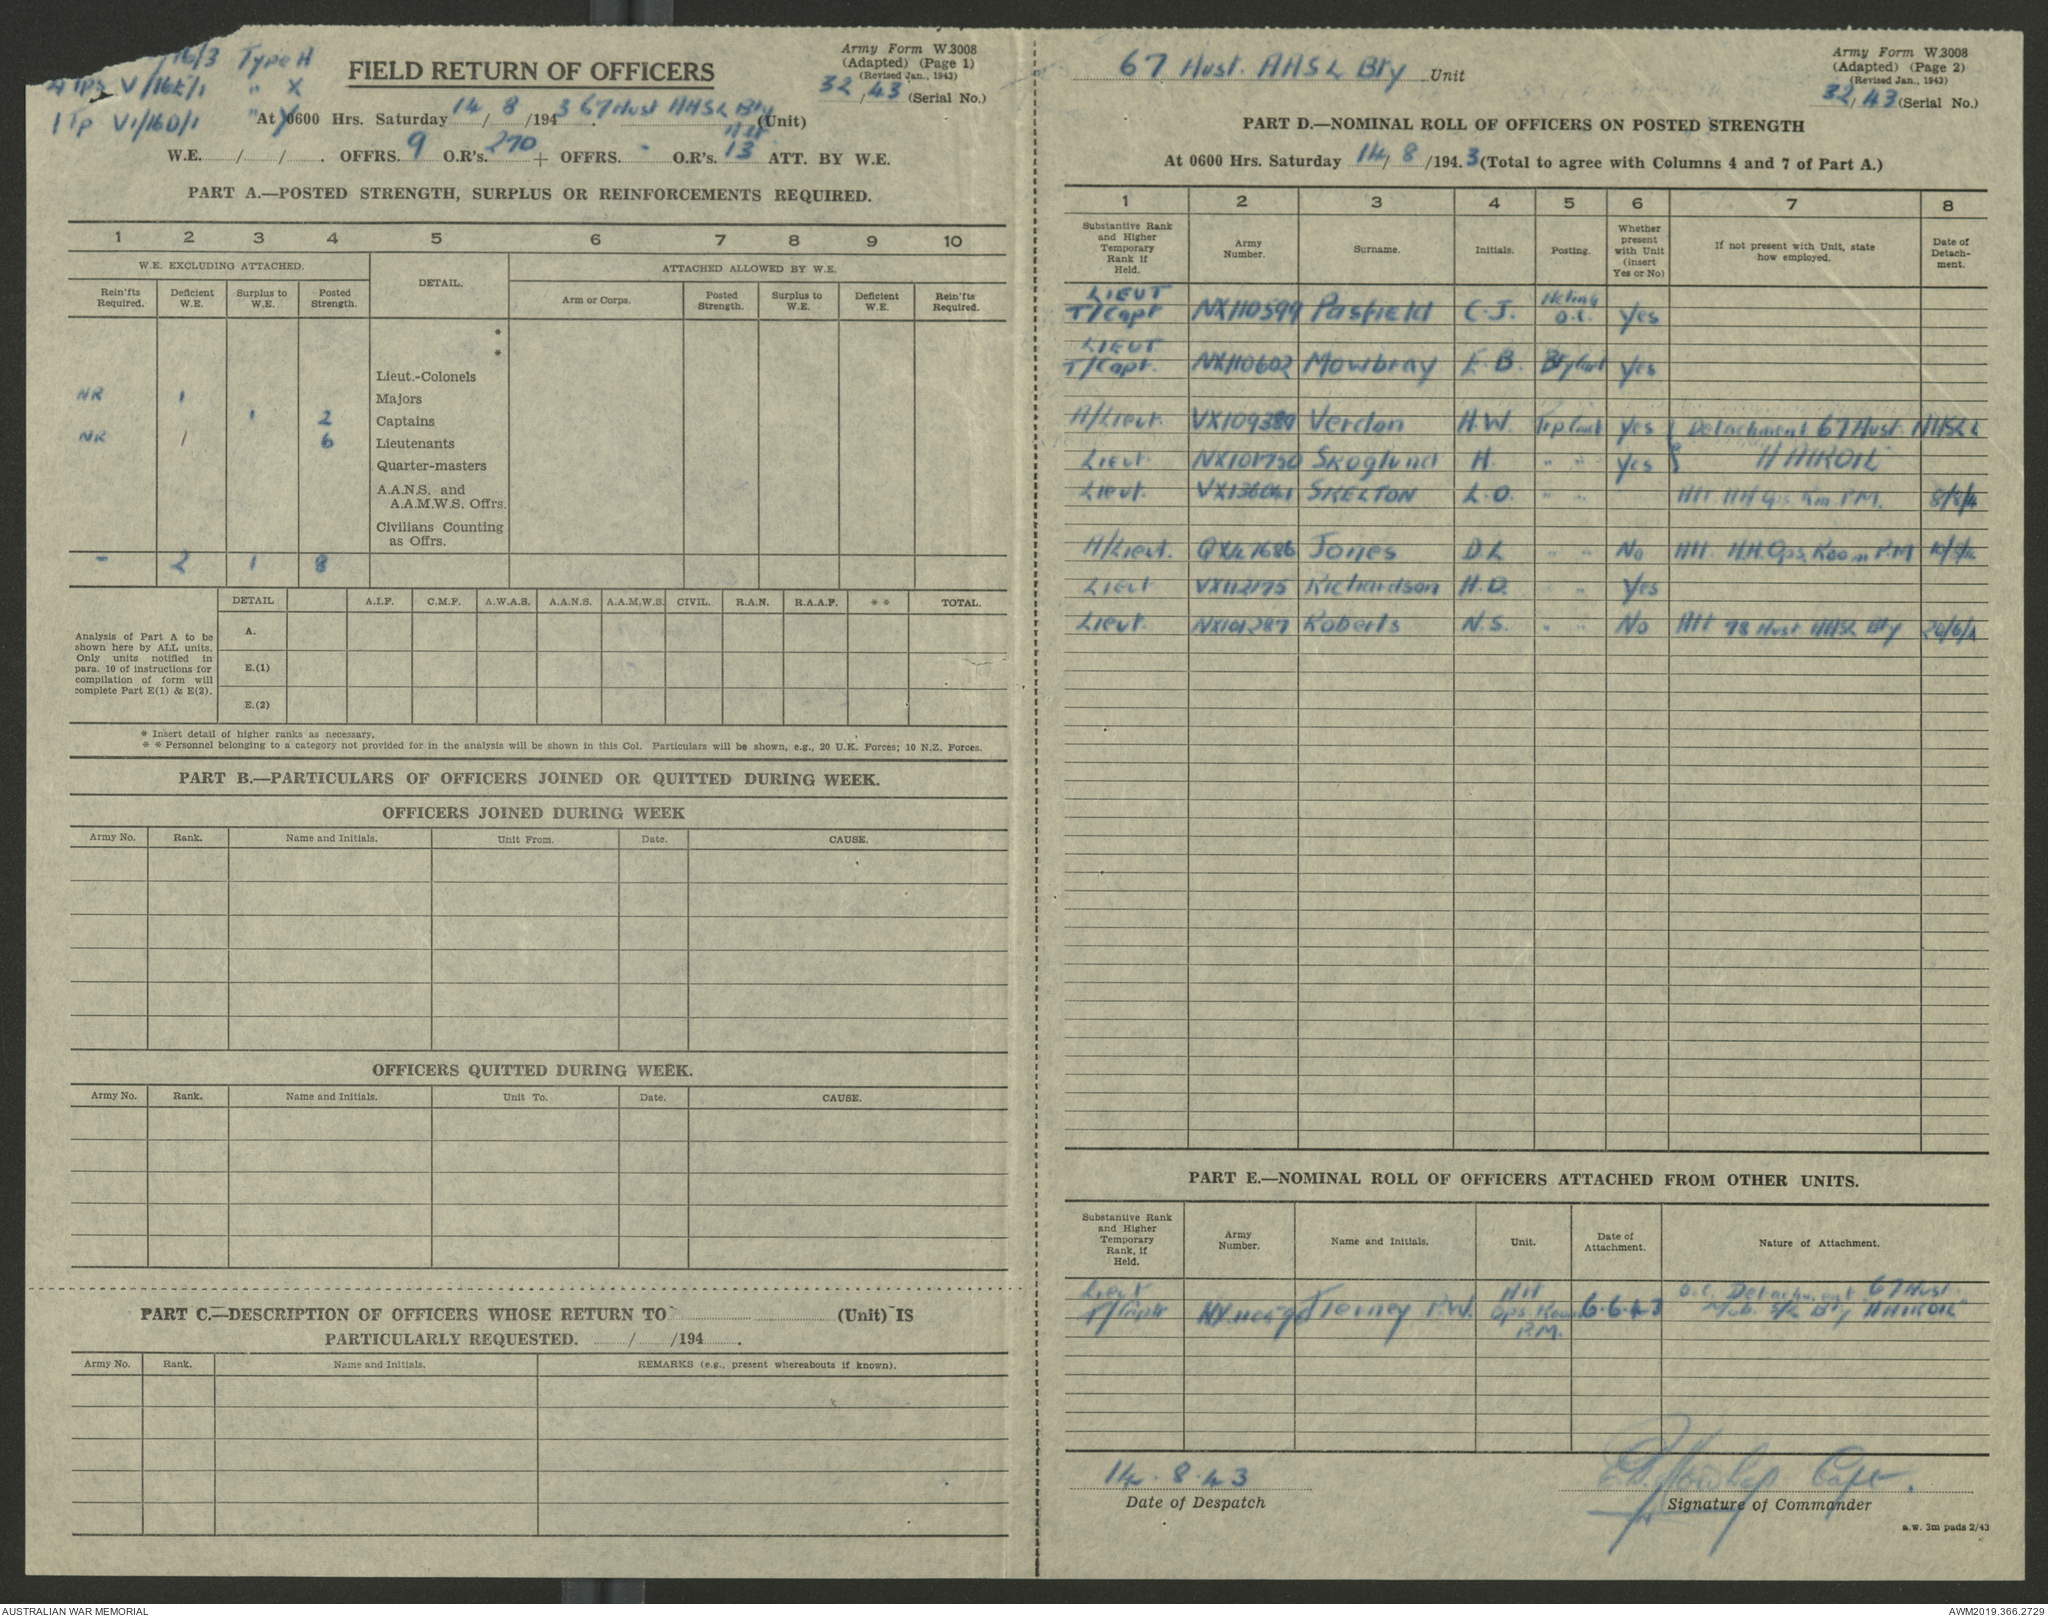 16/3 Type A
4 Tps V/165/1 " X
1 Tp V1/160/1 " Y
FIELD RETURN OF OFFICERS
Army Form W.3008
(Adapted) (Page 1)
(Revised Jan., 1943)
32/43 (Serial No.)
At 0600 Hrs. Saturday 14/8/1943. 67 Aust AASL Bty (Unit)
W.E. / / . OFFRS. 9 O.R's. 270 + OFFRS. - O.R's. 13 ATT. BY W.E.
PART A.—POSTED STRENGTH, SURPLUS OR REINFORCEMENTS REQUIRED.
1 2 3 4 5 6 7 8 9 10
W.E. EXCLUDING ATTACHED. DETAIL. ATTACHED ALLOWED BY W.E.
Rein'fts Required. Deficient W.E. Surplus to W.E. Posted Strength. Arm or Corps. Posted Strength. Surplus to W.E. Deficient W.E. Rein'fts Required.
*
*
Lieut.-Colonels
NR 1 Majors
1 2 Captains
NR 1 6 Lieutenants
Quarter-masters
A.A.N.S. and
A.A.M.W.S. Offrs.
Civilians Counting
as Offrs.
- 2 1 8
DETAIL A.I.F. C.M.F. A.W.A.S. A.A.N.S. A.A.M.W.S. CIVIL. R.A.N. R.A.A.F. * * TOTAL.
Analysis of Part A to be
shown here by ALL units.
Only units notified in
para. 10 of instructions for
compilation of form will
complete Part E(1) & E(2).
A.
E.(1)
E.(2)
* Insert detail of higher ranks as necessary.
* * Personnel belonging to a category not provided for in the analysis will be shown in this Col. Particulars will be shown, e.g., 20 U.K. Forces; 10 N.Z. Forces.
PART B.—PARTICULARS OF OFFICERS JOINED OR QUITTED DURING WEEK.
OFFICERS JOINED DURING WEEK
Army No. Rank. Name and Initials. Unit From. Date. CAUSE.
OFFICERS QUITTED DURING WEEK.
Army No. Rank. Name and Initials. Unit To. Date. CAUSE.
PART C.—DESCRIPTION OF OFFICERS WHOSE RETURN TO (Unit) IS
PARTICULARLY REQUESTED. / /194 .
Army No. Rank. Name and Initials. REMARKS (e.g., present whereabouts if known).
67 Aust. AASL Bty Unit
Army Form W.3008
(Adapted) (Page 2)
(Revised Jan., 1943)
32/43 (Serial No.)
PART D.—NOMINAL ROLL OF OFFICERS ON POSTED STRENGTH
At 0600 Hrs. Saturday 14/8/1943 (Total to agree with Columns 4 and 7 of Part A.)
1 2 3 4 5 6 7 8
Substantive Rank and Higher Temporary Rank if Held. Army Number. Surname. Initials. Posting. Whether present with Unit (insert Yes or No) If not present with Unit, state how employed. Date of Detachment.
LIEUT
T/Capt NX110599 Pasfield C.J. Acting O.C. Yes
LIEUT
T/Capt. NX110602 Mowbray E.B. Bty Capt Yes
A/Lieut. VX109389 Verdon H.W. Trp Comd Yes Detachment 67 Aust. AASL
Lieut. NX101750 Skoglund A. " " Yes
Lieut. VX136041 SKELTON L.O. " " Att. AA Ops Rm P.M. 8/8/4
A/Lieut. QX41686 Jones D.L " " No Att. A.A. Ops. Room P.M
Lieut VX112175 Richardson H.D. " Yes
Lieut. NX101287 Roberts N.S. " " No Att 78 Aust AASL Bty 26/6/4
PART E.—NOMINAL ROLL OF OFFICERS ATTACHED FROM OTHER UNITS.
Substantive Rank and Higher Temporary Rank, if Held. Army Number. Name and Initials. Unit. Date of Attachment. Nature of Attachment.
Lieut AA O.C. Detachment 67 Aust.
T/Capt Tierney P.W. Ops. Room 6.6.43 Bty
P.M.
14.8.43
Date of Despatch
Capt.
Signature of Commander
a.w. 3m pads 2/43
AUSTRALIAN WAR MEMORIAL
AWM2019.366.2729